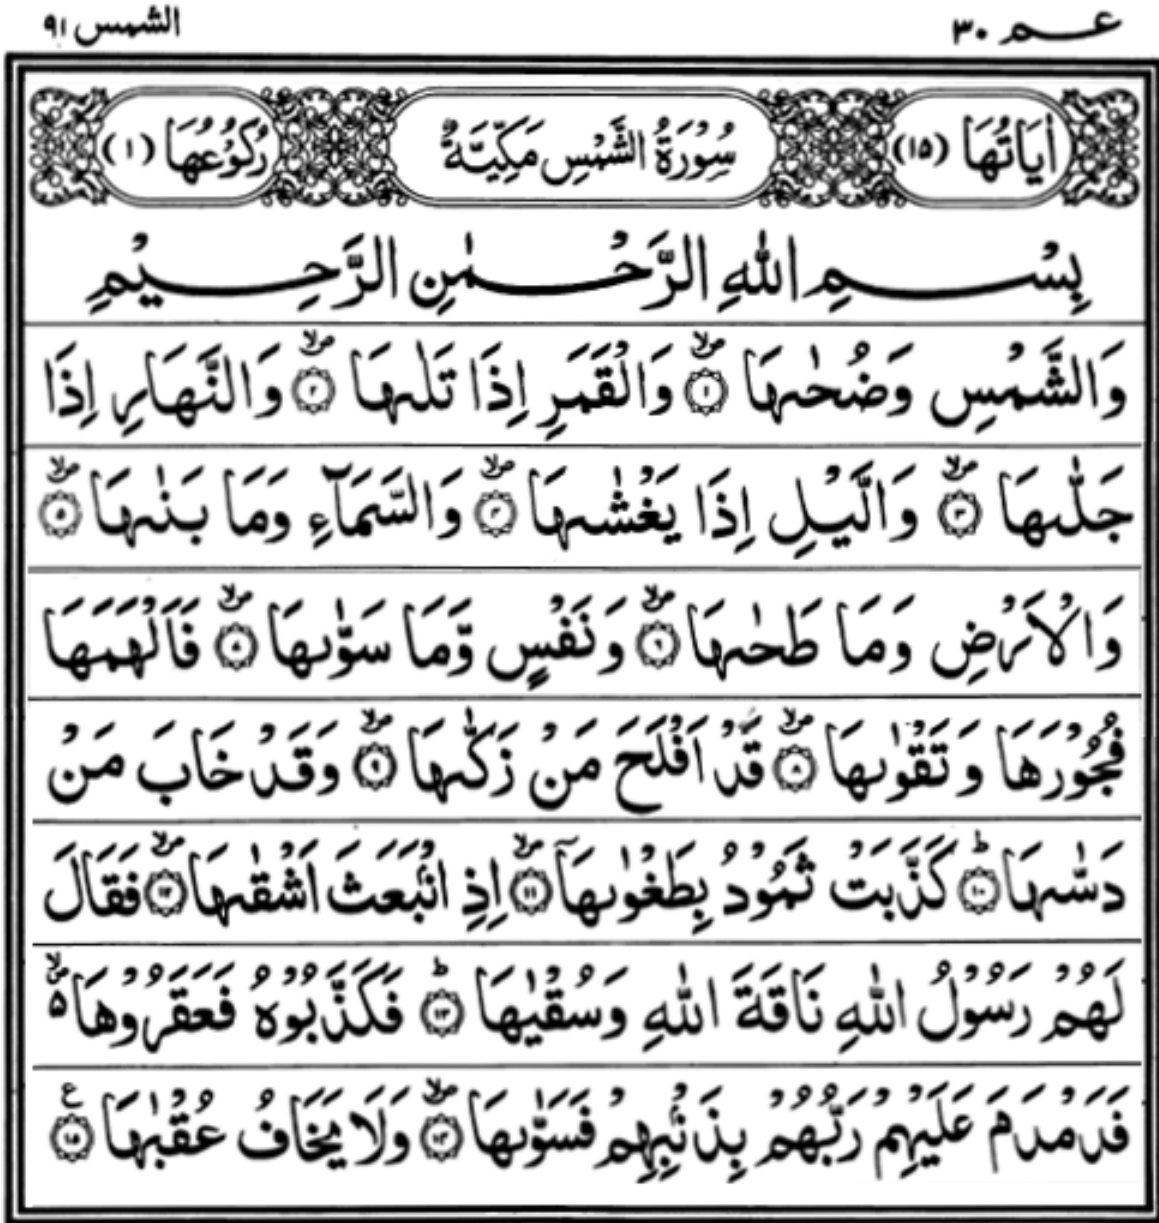 عـــم ٣٠
الشمس ٩١
اٰيَاتُهَا (١٥)
سُوْرَةُ الشَّمْسِ مَكِّيَّةٌ
رُكُوْعُهَا (١)
بِسْمِ اللّٰهِ الرَّحْمٰنِ الرَّحِيْمِ
وَالشَّمْسِ وَضُحٰىهَا ۙ﴿١﴾ وَالْقَمَرِ اِذَا تَلٰىهَا ۙ﴿٢﴾ وَالنَّهَارِ اِذَا
جَلّٰىهَا ۙ﴿٣﴾ وَالَّيْلِ اِذَا يَغْشٰىهَا ۙ﴿٤﴾ وَالسَّمَآءِ وَمَا بَنٰىهَا ۙ﴿٥﴾
وَالْاَرْضِ وَمَا طَحٰىهَا ۙ﴿٦﴾ وَنَفْسٍ وَّمَا سَوّٰىهَا ۙ﴿٧﴾ فَاَلْهَمَهَا
فُجُوْرَهَا وَتَقْوٰىهَا ۙ﴿٨﴾ قَدْ اَفْلَحَ مَنْ زَكّٰىهَا ۙ﴿٩﴾ وَقَدْ خَابَ مَنْ
دَسّٰىهَا ؕ﴿١٠﴾ كَذَّبَتْ ثَمُوْدُ بِطَغْوٰىهَآ ۙ﴿١١﴾ اِذِ انْۢبَعَثَ اَشْقٰىهَا ۙ﴿١٢﴾ فَقَالَ
لَهُمْ رَسُوْلُ اللّٰهِ نَاقَةَ اللّٰهِ وَسُقْيٰهَا ؕ﴿١٣﴾ فَكَذَّبُوْهُ فَعَقَرُوْهَا ۙ۵
فَدَمْدَمَ عَلَيْهِمْ رَبُّهُمْ بِذَنْۢبِهِمْ فَسَوّٰىهَا ۙ﴿١٤﴾ وَلَا يَخَافُ عُقْبٰهَا ﴿١٥﴾ ع